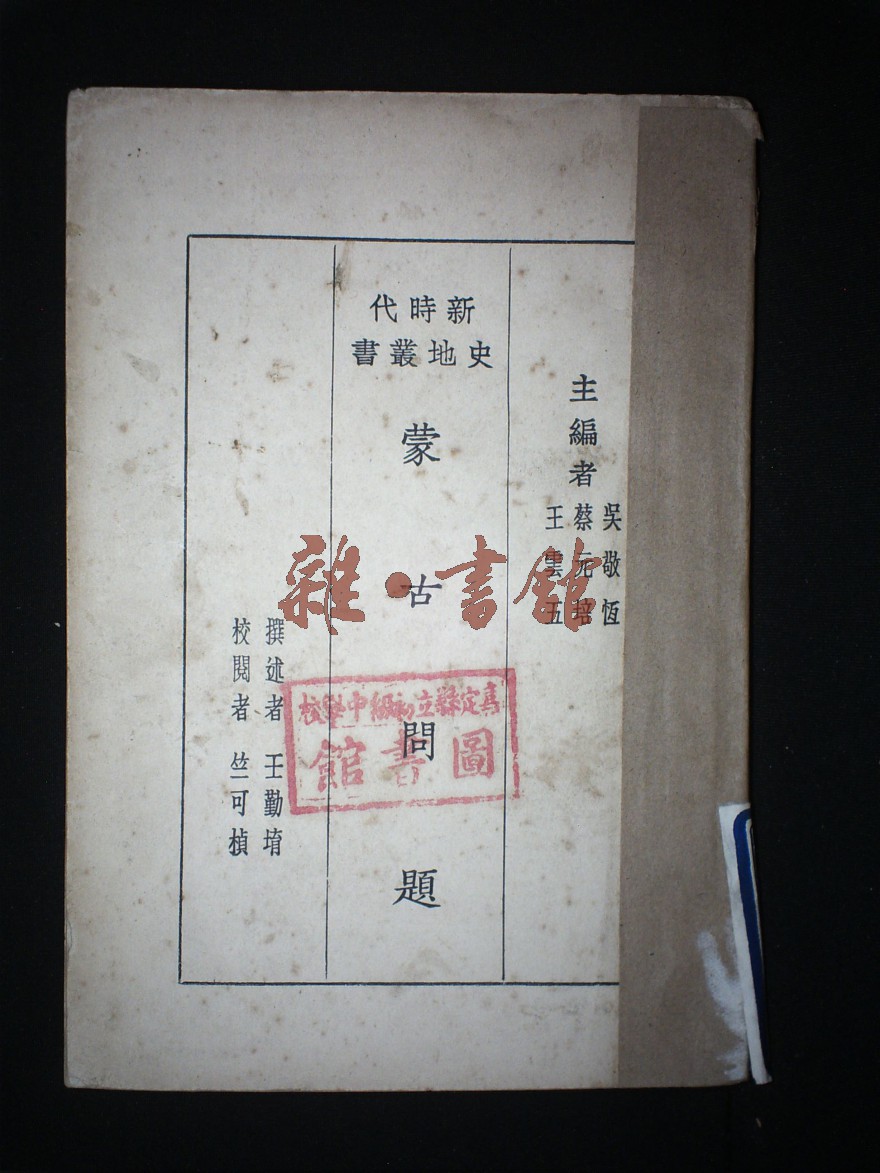 主編者
吳敬恆
蔡元培
王雲五
新時代
史地叢書
蒙古問題
撰述者 王勤堉
校閱者 竺可楨
定縣立初級中學校
圖書館
雜·書館